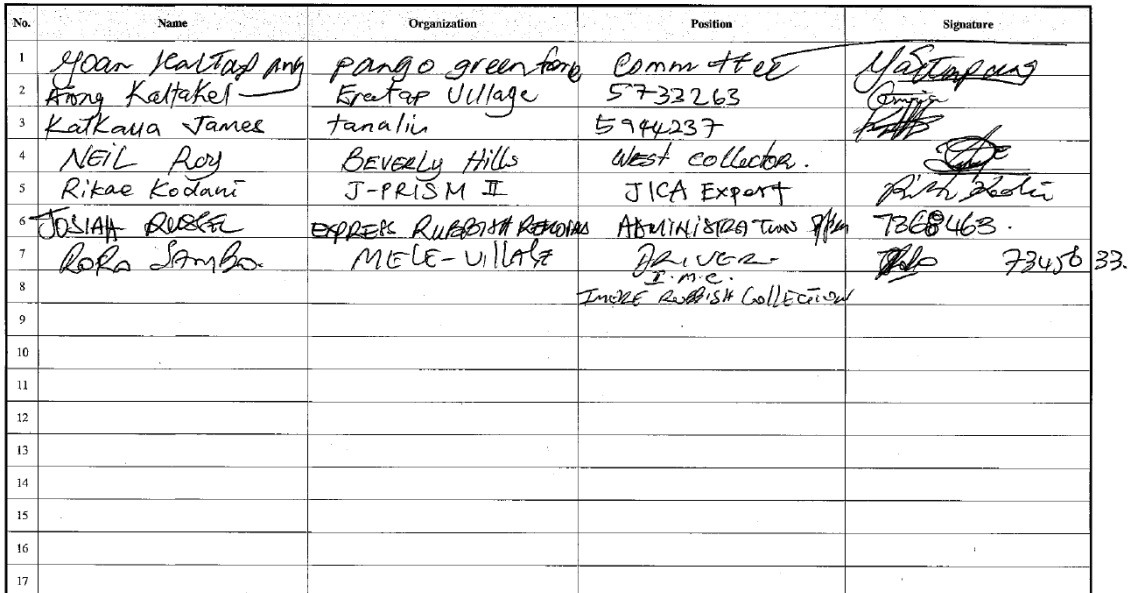 No. Name Organization Position Signature
1 Yoan Kaltap ang pango green force Committee
2 Atong Kaltakel Eratap Village 5733263
3 Katkaua James tanaliu 5944237
4 NEIL Roy BEVERLY Hills West collector.
5 Rikae Kodani J-PRISM II JICA Expert
6 JOSIAH EXPRESS RUBBISH ADMINISTRATION 7368463.
7 RoRo SAMBo. MELE-VILLAGE DRIVER 7345633.
I.M.C.
8 IMERE RUBBISH CollECTION
9
10
11
12
13
14
15
16
17